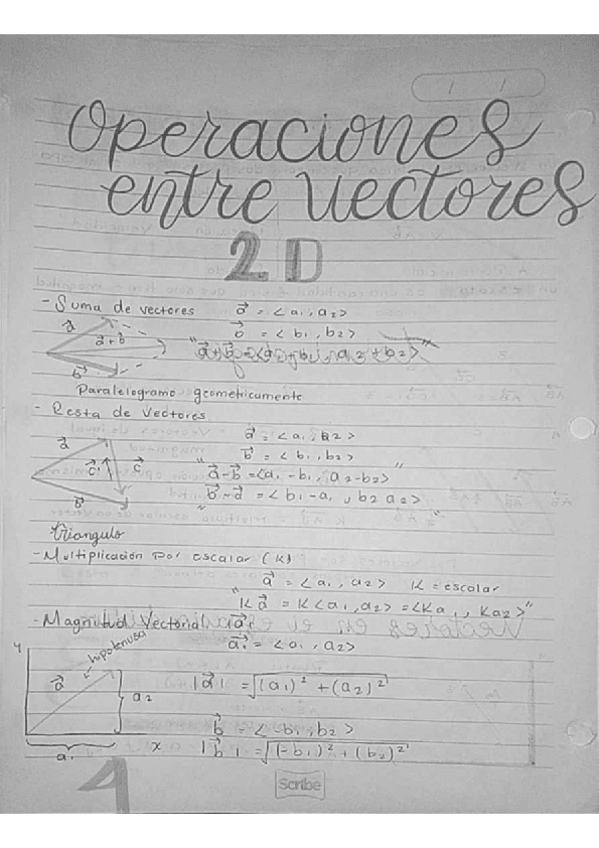 Operaciones
entre Vectores
2D
- Suma de vectores a⃗ = < a₁, a₂>
a⃗ b⃗ = < b₁, b₂>
a⃗+b⃗ "a⃗+b⃗ = <a₁+b₁, a₂+b₂>"
b⃗
Paralelogramo geometricamente
- Resta de Vectores
a⃗ a⃗ = < a₁, a₂>
b⃗ = < b₁, b₂>
c⃗' c⃗ "a⃗-b⃗ = <a₁-b₁, a₂-b₂>"
b⃗ "b⃗-a⃗ = < b₁-a₁, b₂ a₂>
triangulo
- Multiplicación Por escalar (K)
a⃗ = < a₁, a₂> K = escalar
"K a⃗ = K<a₁, a₂> = <Ka₁, Ka₂>"
- Magnitud Vectorial |a⃗|
y hipotenusa a⃗ = < a₁, a₂>
a⃗ |a⃗| = √(a₁)² + (a₂)²
a₂
b⃗ = < -b₁, b₂ >
a₁ x |b⃗| = √(-b₁)² + (b₂)²
1
Scribe